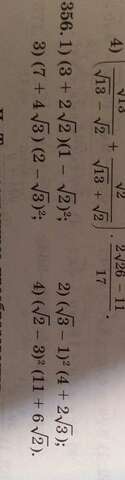 4) (√13 / (√13 − √2) + √2 / (√13 + √2)) · (2√26 − 11) / 17.
356. 1) (3 + 2√2)(1 − √2)²;
2) (√3 − 1)² (4 + 2√3);
3) (7 + 4√3)(2 − √3)²;
4) (√2 − 3)² (11 + 6√2).